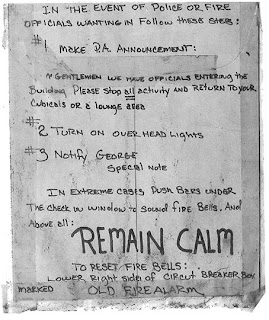 IN THE EVENT OF POLICE OR FIRE
OFFICIALS WANTING IN FOLLOW THESE STEPS:
#1 MAKE P.A. ANNOUNCEMENT:
"GENTLEMEN WE HAVE OFFICIALS ENTERING THE
BUILDING PLEASE STOP all ACTIVITY AND RETURN TO YOUR
CUBICALS OR A LOUNGE AREA
#2 TURN ON OVERHEAD LIGHTS
#3 NOTIFY GEORGE
SPECIAL NOTE
IN EXTREME CASES PUSH BARS UNDER
THE CHECK IN WINDOW TO SOUND FIRE BELLS. AND
ABOVE ALL:
REMAIN CALM
TO RESET FIRE BELLS:
LOWER RIGHT SIDE OF CIRCUT BREAKER BOX
MARKED OLD FIRE ALARM